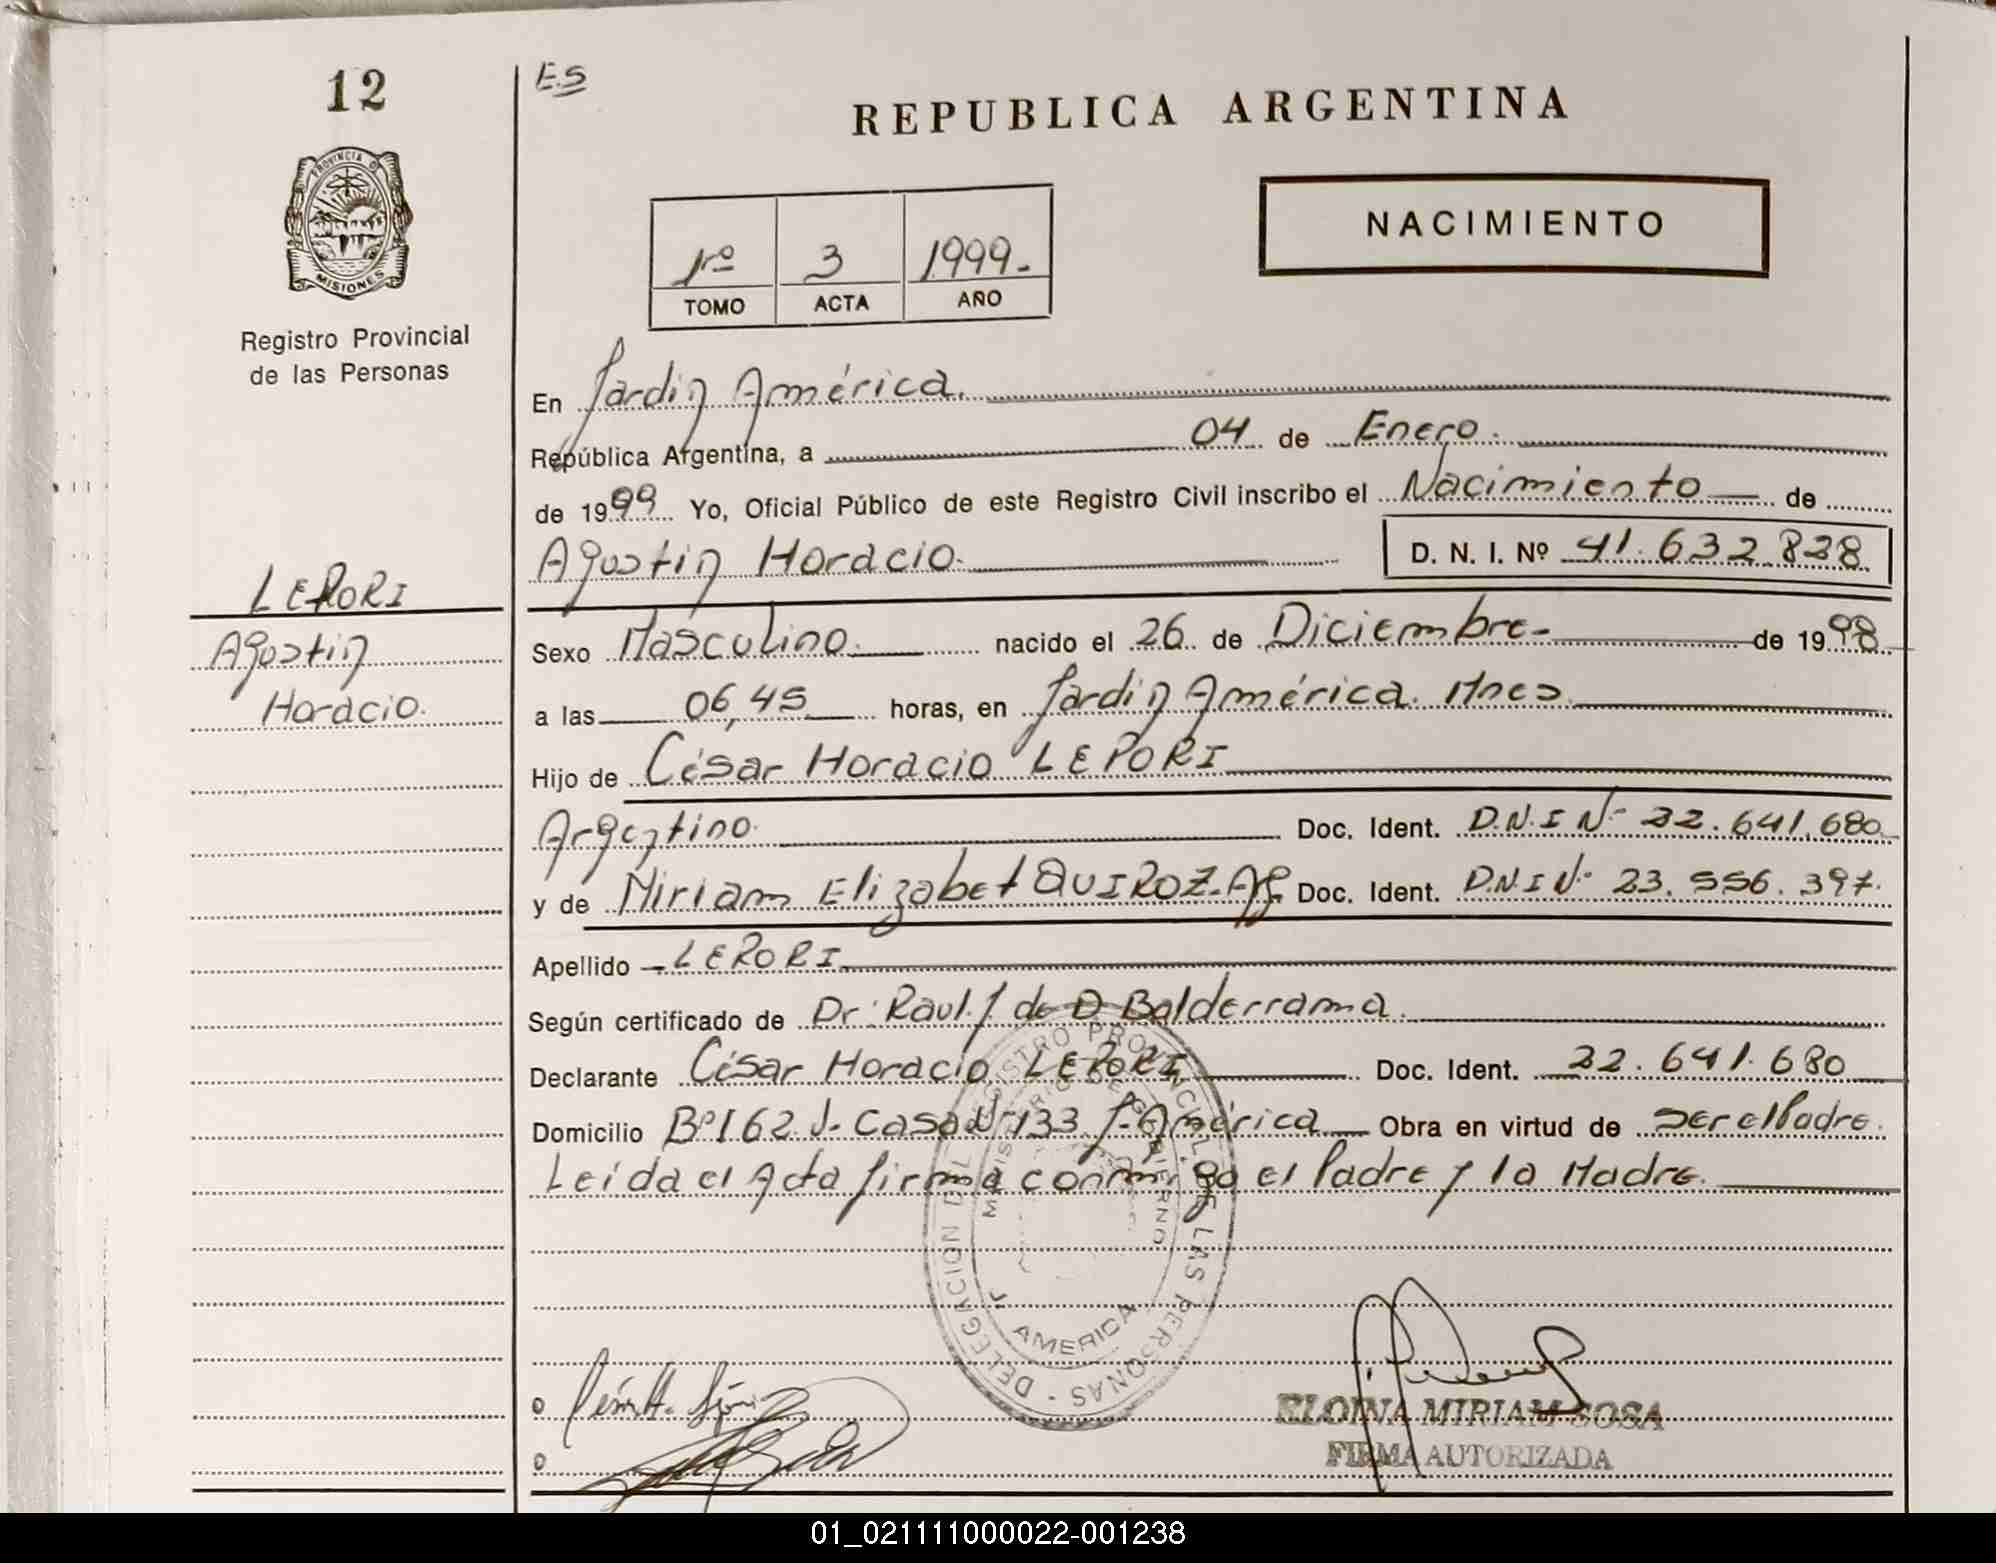 12
E.S
REPUBLICA ARGENTINA
PROVINCIA DE
MISIONES
Registro Provincial
de las Personas
1ro 3 1999.-
TOMO ACTA AÑO
NACIMIENTO
En Jardín América.
República Argentina, a 04 de Enero.
de 1999 Yo, Oficial Público de este Registro Civil inscribo el Nacimiento de
Agostin Horacio. D. N. I. Nº 41.632.828
LEPORI
Agostin
Horacio.
Sexo Masculino. nacido el 26 de Diciembre- de 1998
a las 06,45 horas, en Jardín América. Mnes.
Hijo de César Horacio LEPORI
Argentino. Doc. Ident. D.N.I Nº 22.641.680
y de Miriam Elizabet QUIROZ-Ag. Doc. Ident. D.N.I Nº 23.556.397.
Apellido LEPORI
Según certificado de Dr. Raul J de D Balderrama.
Declarante César Horacio LEPORI Doc. Ident. 22.641.680
Domicilio Bº 162 V- Casa Nº 133 J-América Obra en virtud de Ser el Padre.
Leída el Acta firma conmigo el Padre y la Madre.
DELEGACION DEL REGISTRO PROVINCIAL DE LAS PERSONAS -
MINISTERIO DE GOBIERNO
J. AMERICA
ELOINA MIRIAM SOSA
FIRMA AUTORIZADA
01_021111000022-001238